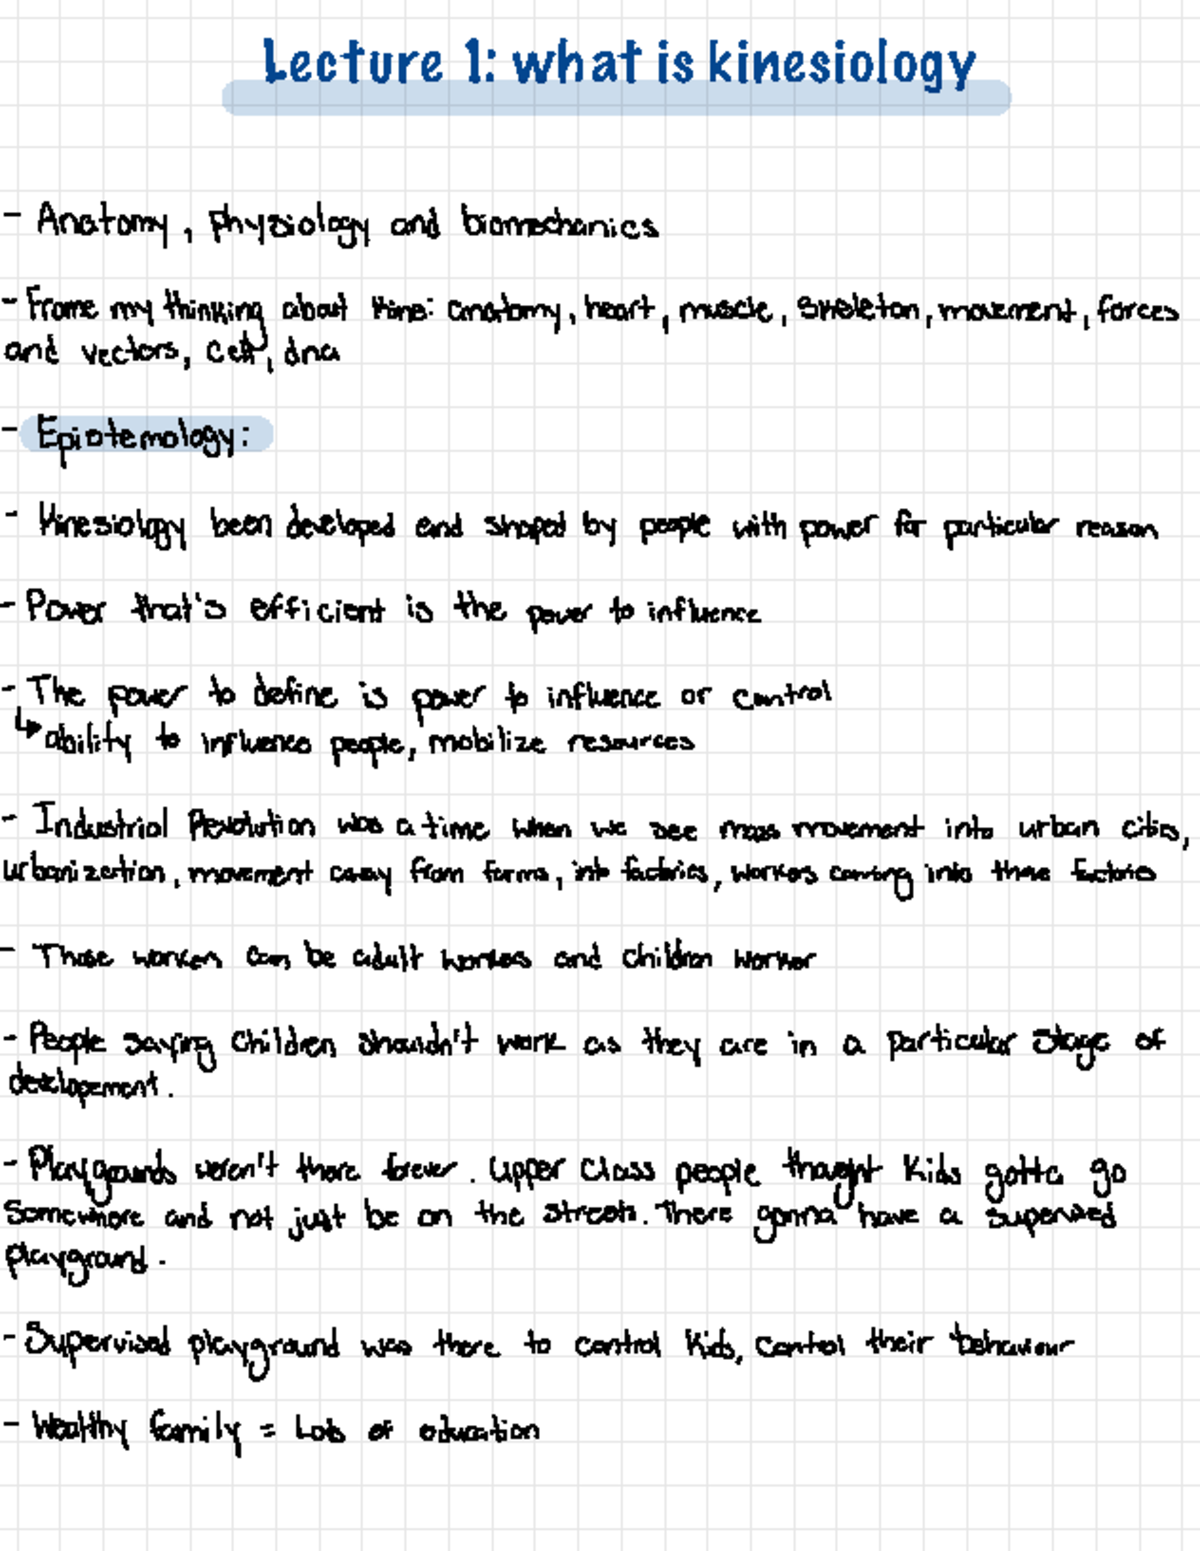 Lecture 1: what is kinesiology
- Anatomy, physiology and biomechanics
- Frame my thinking about Kine: anatomy, heart, muscle, skeleton, movement, forces
and vectors, cell, dna
- Epistemology:
- Kinesiology been developed and shaped by people with power for particular reason
- Power that's efficient is the power to influence
- The power to define is power to influence or control
↳ ability to influence people, mobilize resources
- Industrial Revolution was a time when we see mass movement into urban cities,
urbanization, movement away from farms, into factories, workers coming into these factories
- Those workers can be adult workers and children worker
- People saying children shouldn't work as they are in a particular stage of
developement.
- Playgrounds weren't there forever. Upper class people thought kids gotta go
somewhere and not just be on the streets. There gonna have a supervised
playground.
- Supervised playground was there to control kids, control their behaviour
- Wealthy family = Lots of education